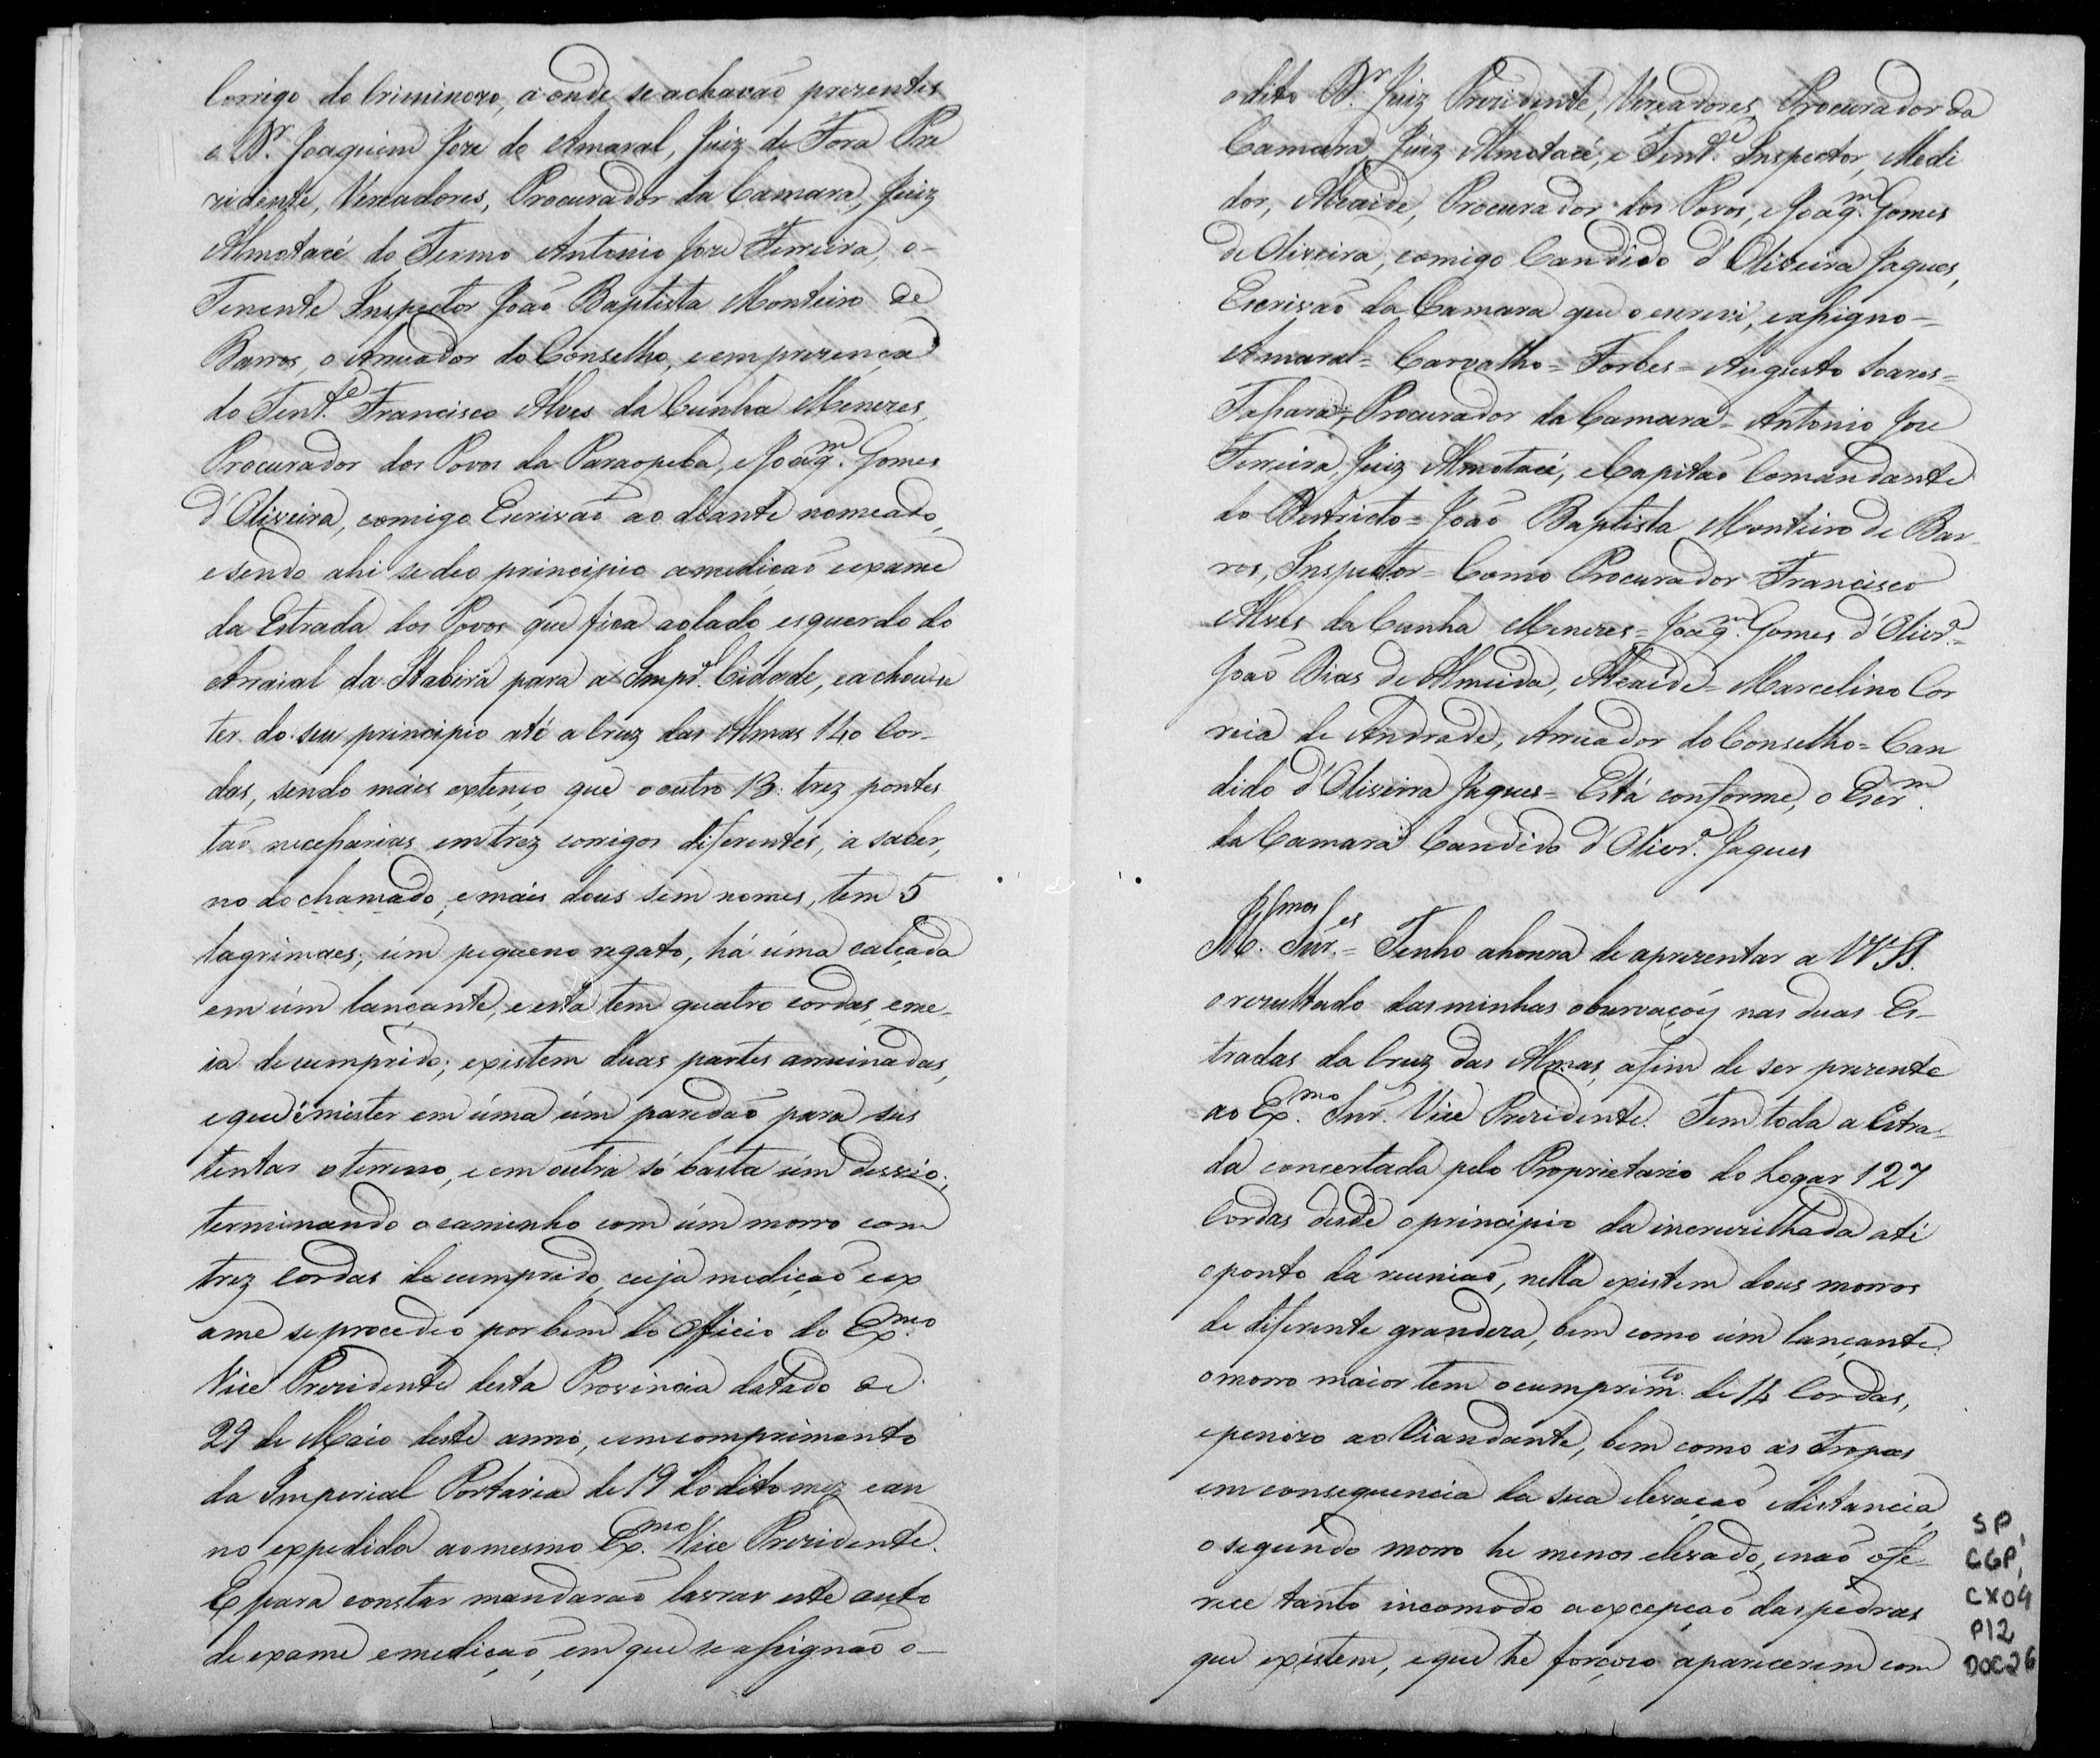 Corrigo do Criminozo, a onde se achavaõ prezentes
o Dr. Joaquim Joze do Amaral, Juiz de Fora Pre
zidente, Vereadores, Procurador da Camara, Juiz
Almotacé do Termo Antonio Joze Ferreira, o-
Tenente Inspector Joaõ Baptista Monteiro de
Barros, o Arruador do Conselho, e em prezença
do Tente. Francisco Alves da Cunha Menezes,
Procurador dos Povos da Paraopeba, e Joaqm. Gomes
d'Oliveira, comigo Escrivaõ ao diante nomeado,
e sendo ahi se deo principio a mediçaõ e exame
da Estrada dos Povos que fica ao lado esquerdo do
Arraial da Itabira para a Impal. Cidade, e achou-se
ter do seu principio até a Cruz das Almas 140 Cor-
das, sendo mais extenço que o outro 13: trez pontes
saõ necessarias em trez corrigos diferentes, a saber,
no do chamado, e mais dous sem nomes, tem 5
lagrimaes; úm pequeno regato, há úma calçada
em úm lançante, e esta tem quatro cordas, e me-
ia de cumprido; existem duas partes arruinadas,
e que é mister em úma úm paredaõ para sus
tentar o terreno, e em outra só basta úm desvio;
terminando o caminho com úm morro com
trez cordas de cumprido, cuja mediçaõ e ex
ame se procedeo por bem do Officio do Exmo.
Vice Prezidente desta Provincia datado de
29 de Maio deste anno, e em comprimento
da Imperial Portaria de 19 do dito mez e an
no expedida ao mesmo Exmo. Vice Prezidente.
E para constar mandaraõ lavrar este auto
de exame e mediçaõ, em que se assignaõ o-
o dito Dr. Juiz Prezidente, Vereadores, Procurador da
Camara, Juiz Almotacé, e Tente. Inspector, Medi
dor, Alcaide, Procurador dos Povos, e Joaqm. Gomes
de Oliveira, comigo Candido d'Oliveira Jaques,
Escrivaõ da Camara que o escrevi, e assigno-
Amaral = Carvalho = Forbes = Augusto Soares =
Procurador da Camara = Antonio Joze
Ferreira, Juiz Almotacé, e Capitaõ Comandante
do Destricto = Joaõ Baptista Monteiro de Bar-
ros, Inspector = Como Procurador Francisco
Alves da Cunha Menezes = Joaqm. Gomes d'Olivra. =
Joaõ Dias de Almeida, Alcaide = Marcelino Cor
reia de Andrade, Arruador do Conselho = Can
dido d'Oliveira Jaques = Está conforme, o Escrm.
da Camara Candido d'Olivra. Jaques
Illmos
M. Snr.es = Tenho a honra de aprezentar a VV. SS.
o rezultado das minhas observaçoẽs nas duas Es-
tradas da Cruz das Almas, afim de ser prezente
ao Exmo. Snr. Vice Prezidente. Tem toda a Estra-
da concertada pelo Proprietario do Logar 127
Cordas desde o principio da incruzilhada até
o ponto da reuniaõ, nella existem dous morros
de diferente grandeza, bem como úm lançante.
o morro maior tem o cumprimto. de 14 Cordas,
e penozo ao Viandante, bem como as Tropas
em consequencia da sua elevaçaõ e distancia,
o segúndo morro he menos elevado, e naõ ofe-
rece tanto incomodo a excepçaõ das pedras
que existem, e que he forçozo aparecerem com
SP,
CGP1,
CX04
P12
DOC26